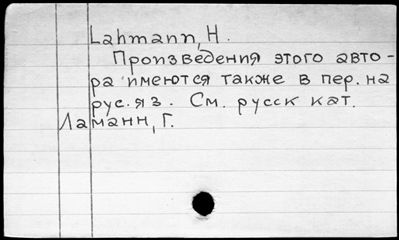 Lahmann, H.
Произведения этого авто-
ра имеются также в пер. на
рус. яз. См. русск кат.
Ламанн, Г.